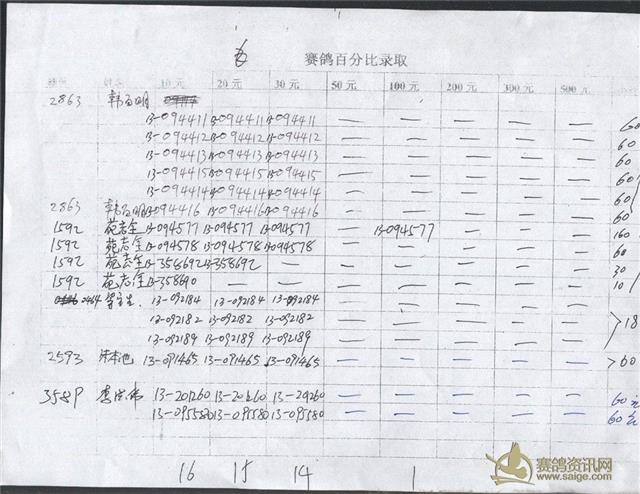 赛鸽百分比录取
姓名 10元 20元 30元 50元 100元 200元 300元 500元
2863
13-094411 13-094411 13-094411 — — — — — 60
13-094412 13-094412 13-094412 — — — — — 60
13-094413 13-094413 13-094413 — — — — — 60
13-094415 13-094415 13-094415 — — — — — 60
13-094414 13-094414 13-094414 — — — — — 60
2863 13-094416 13-094416 13-094416 — — — — — 60
1592 苑志全 13-094577 13-094577 13-094577 — 13-094577 — — — 160
1592 苑志全 13-094578 13-094578 13-094578 — — — — — 60
1592 苑志全 13-358692 13-358692 — — — — — — 30
1592 苑志全 13-358690 — — — — — — — 10
13-092184 13-092184 13-092184 — — — — —
13-092182 13-092182 13-092182 — — — — — 18
13-092189 13-092189 13-092189 — — — — —
2593 13-091465 13-091465 13-091465 — — — — — 60
3589 13-201260 13-201260 13-29260 — — — — — 60元
13-095580 13-095580 13-095580 — — — — — 60元
16 15 14 1
赛鸽资讯网
www.saige.com